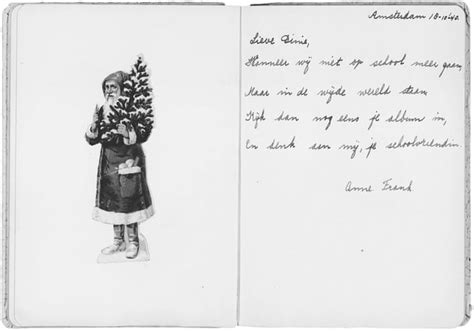 Amsterdam 18-10-40.
Lieve Dinie,
Wanneer wij niet op school meer gaan,
Maar in de wijde wereld staan,
Kijk dan nog eens je album in,
En denk aan mij, je schoolvriendin.
Anne Frank